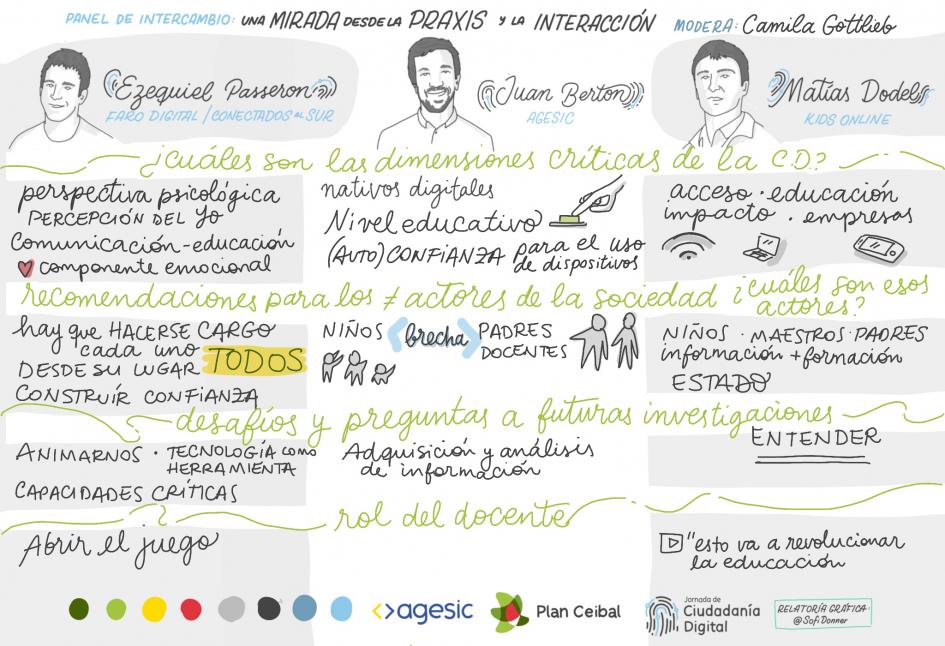 PANEL DE INTERCAMBIO: UNA MIRADA DESDE LA PRAXIS Y LA INTERACCIÓN MODERA: Camila Gottlieb
Ezequiel Passeron
FARO DIGITAL / CONECTADOS AL SUR
Juan Berton
AGESIC
Matías Dodel
KIDS ONLINE
¿cuáles son las dimensiones críticas de la C.D?
perspectiva psicológica
PERCEPCIÓN DEL YO
Comunicación-educación
componente emocional
nativos digitales
Nivel educativo
(AUTO) CONFIANZA para el uso
de dispositivos
acceso · educación
impacto · empresas
recomendaciones para los ≠ actores de la sociedad ¿cuáles son esos
actores?
hay que HACERSE CARGO
cada uno
DESDE SU LUGAR TODOS
CONSTRUÍR CONFIANZA
NIÑOS <brecha> PADRES
DOCENTES
NIÑOS · MAESTROS · PADRES
información + formación
ESTADO
desafíos y preguntas a futuras investigaciones
ANIMARNOS · TECNOLOGÍA como
HERRAMIENTA
CAPACIDADES CRÍTICAS
Adquisición y análisis
de información
ENTENDER
rol del docente
Abrir el juego
"esto va a revolucionar
la educación
<>agesic
Plan Ceibal
Jornada de
Ciudadanía
Digital
RELATORÍA GRÁFICA:
@SofiDonner